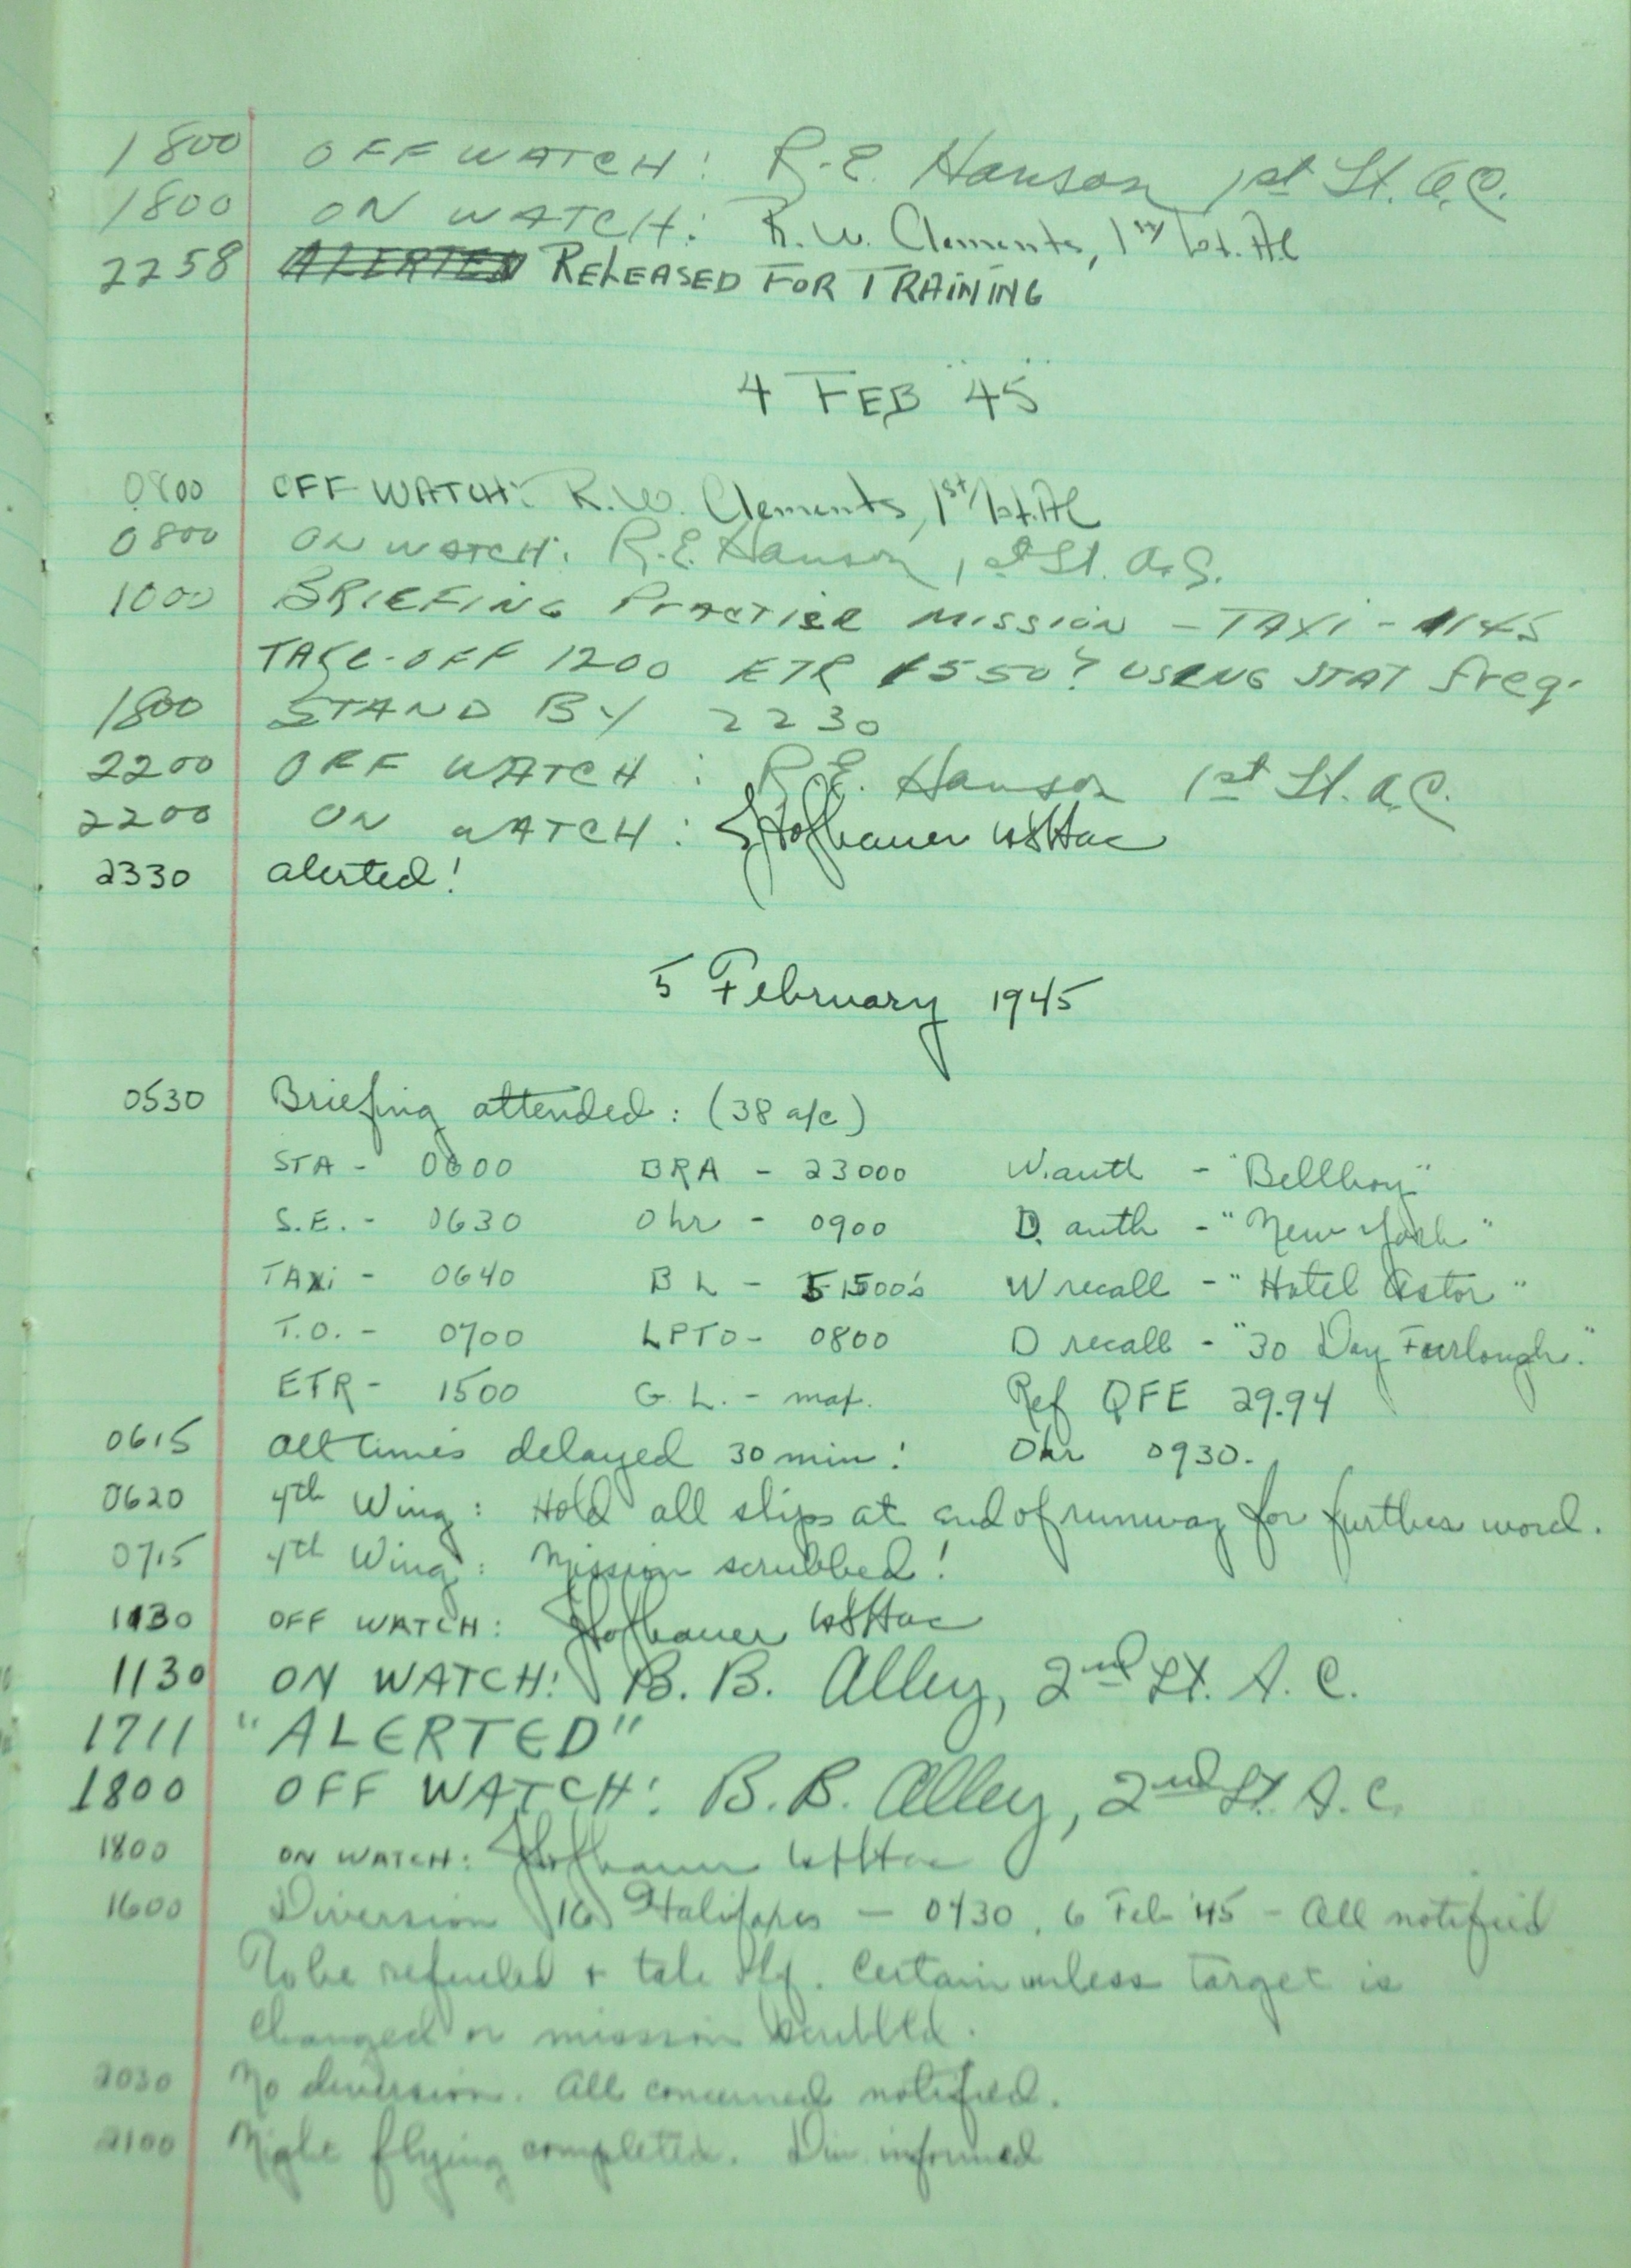 1800 OFF WATCH: R.E. Hanson 1st Lt. A.C.
1800 ON WATCH: R.W. Clements, 1st Lt. AC
2258 ALERTED RELEASED FOR TRAINING
4 FEB '45
0800 OFF WATCH: R.W. Clements, 1st Lt. AC
0800 ON WATCH: R.E. Hanson, 1st Lt. A.C.
1000 BRIEFING PRACTICE MISSION - TAXI - 1145
TAKE-OFF 1200 ETR 1550? USING STAT freq.
1800 STAND BY 2230
2200 OFF WATCH: R.E. Hanson 1st Lt. A.C.
2200 ON WATCH: Hofbauer
2330 alerted!
5 February 1945
0530 Briefing attended: (38 a/c)
STA - 0600 BRA - 23000 W. auth - "Bellboy"
S.E. - 0630 Ohr - 0900 D. auth - "New York"
TAXi - 0640 B L - 5 1500's W recall - "Hotel Astor"
T.O. - 0700 LPTO - 0800 D recall - "30 Day Furlough."
ETR - 1500 G. L. - max. Ref QFE 29.94
0615 All times delayed 30 min! Ohr 0930.
0620 4th Wing: Hold all ships at end of runway for further word.
0715 4th Wing: Mission scrubbed!
1130 OFF WATCH: Hofbauer
1130 ON WATCH: B. B. Alley, 2nd Lt. A. C.
1711 "ALERTED"
1800 OFF WATCH: B. B. Alley, 2nd Lt. A. C.
1800 ON WATCH: Hofbauer
1600 Diversion 16 Halifaxes - 0430, 6 Feb '45 - All notified
To be refueled + take off. Certain unless target is
changed or mission scrubbed.
2030 No diversion. All concerned notified.
2100 Night flying completed. Div. informed